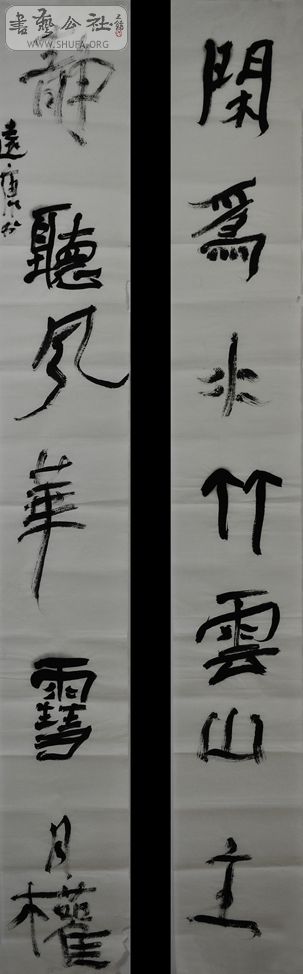 書藝公社
WWW.SHUFA.ORG
閑爲水竹雲山主
靜聽風華雪月權